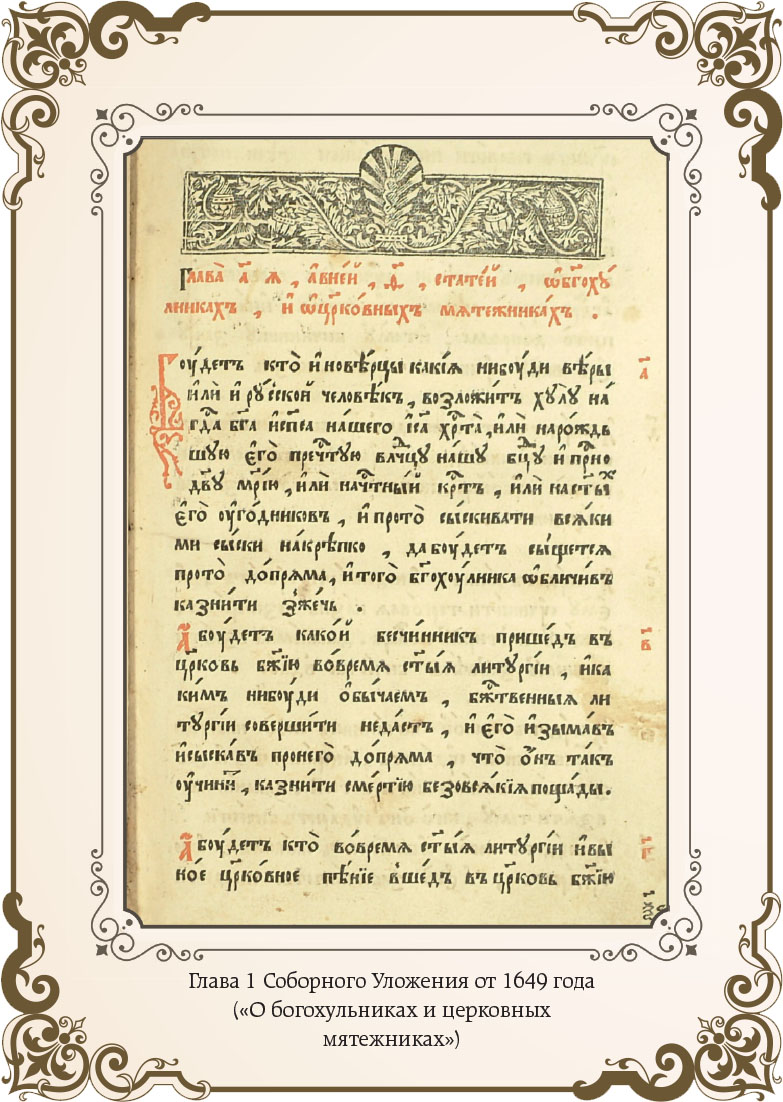 Глава̀ а҃ я , а҆ в не́й , ѳ҃ , стате́й , ѡ҆ бг҃оху́
лникахъ , и҆ ѡ҆ цр҃ко́вныхъ мяте́жникахъ .
Боу́детъ кто̀ и҆нове́рцы какі́я нибоу́ди ве́ры
а҃
и҆лѝ и҆ ру́сской человѣ́къ , возложи́тъ хулꙋ̀ на́
гд҃а бг҃а и҆ сп҃са на́шего і҆с҃а хр҃та̀ , и҆лѝ нарожд̾ь
шую є҆го̀ преч҃тую влад҃чцу на́шу бц҃у и҆ при҃сно
дв҃у мр҃і́ю , и҆лѝ нач҃тны́й кр҃тъ , и҆лѝ наст҃ы́х
є҆го̀ оу҆го́дниковъ , и҆ прото̀ сы́скивати вся́ки
ми сы́ски накрѣ́пко , да боу́детъ сы́щется
прото̀ до́пряма , и҆ того̀ бг҃охоу́лника ѡ҆бличи́въ
казни́ти зже́чь .
А҆ боу́детъ како́й бесчи́нникъ прише́дъ въ
в҃
цр҃ковь бж҃ію во́время ст҃ы́я литургі́и , и҆ ка
ки́мъ нибоу́ди о҆бы́чаемъ , бж҃твенныя ли
тургі́и соверши́ти неда́стъ , и҆ є҆го̀ и҆зыма́въ
и҆ сыска́въ пронего̀ до́пряма , что̀ о҆́нъ та́къ
оу҆чини́т , казни́ти сме́ртію безовся́кія поща́ды .
А҆ боу́детъ кто̀ во́время ст҃ы́я литургі́и и҆ в ы
г҃
но́е цр҃ко́вное пѣ́ніе вше́дъ въ цр҃ковь бж҃ію
Глава 1 Соборного Уложения от 1649 года
(«О богохульниках и церковных
мятежниках»)